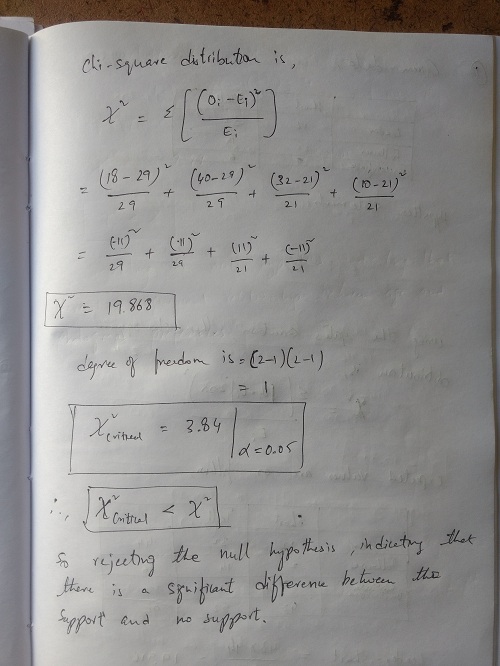 Chi-square distribution is,
χ² = Σ [ (Oi - Ei)² / Ei ]
= (18-29)² / 29 + (40-29)² / 29 + (32-21)² / 21 + (10-21)² / 21
= (-11)² / 29 + (11)² / 29 + (11)² / 21 + (-11)² / 21
χ² = 19.868
degree of freedom is = (2-1)(2-1)
= 1
χ² critical = 3.84 | α = 0.05
∴, χ² critical < χ²
So rejecting the null hypothesis, indicating that
there is a significant difference between the
support and no support.